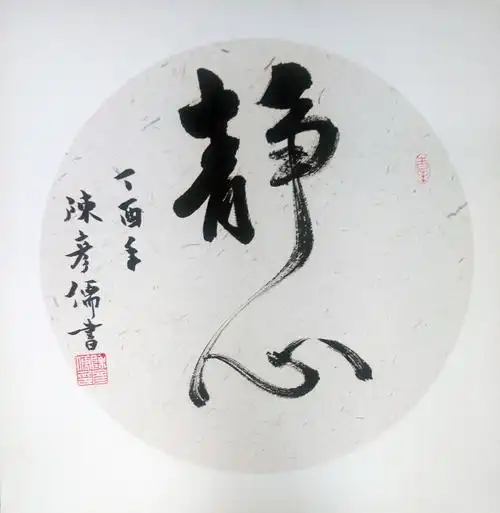 静心
丁酉年
陳彦儒書